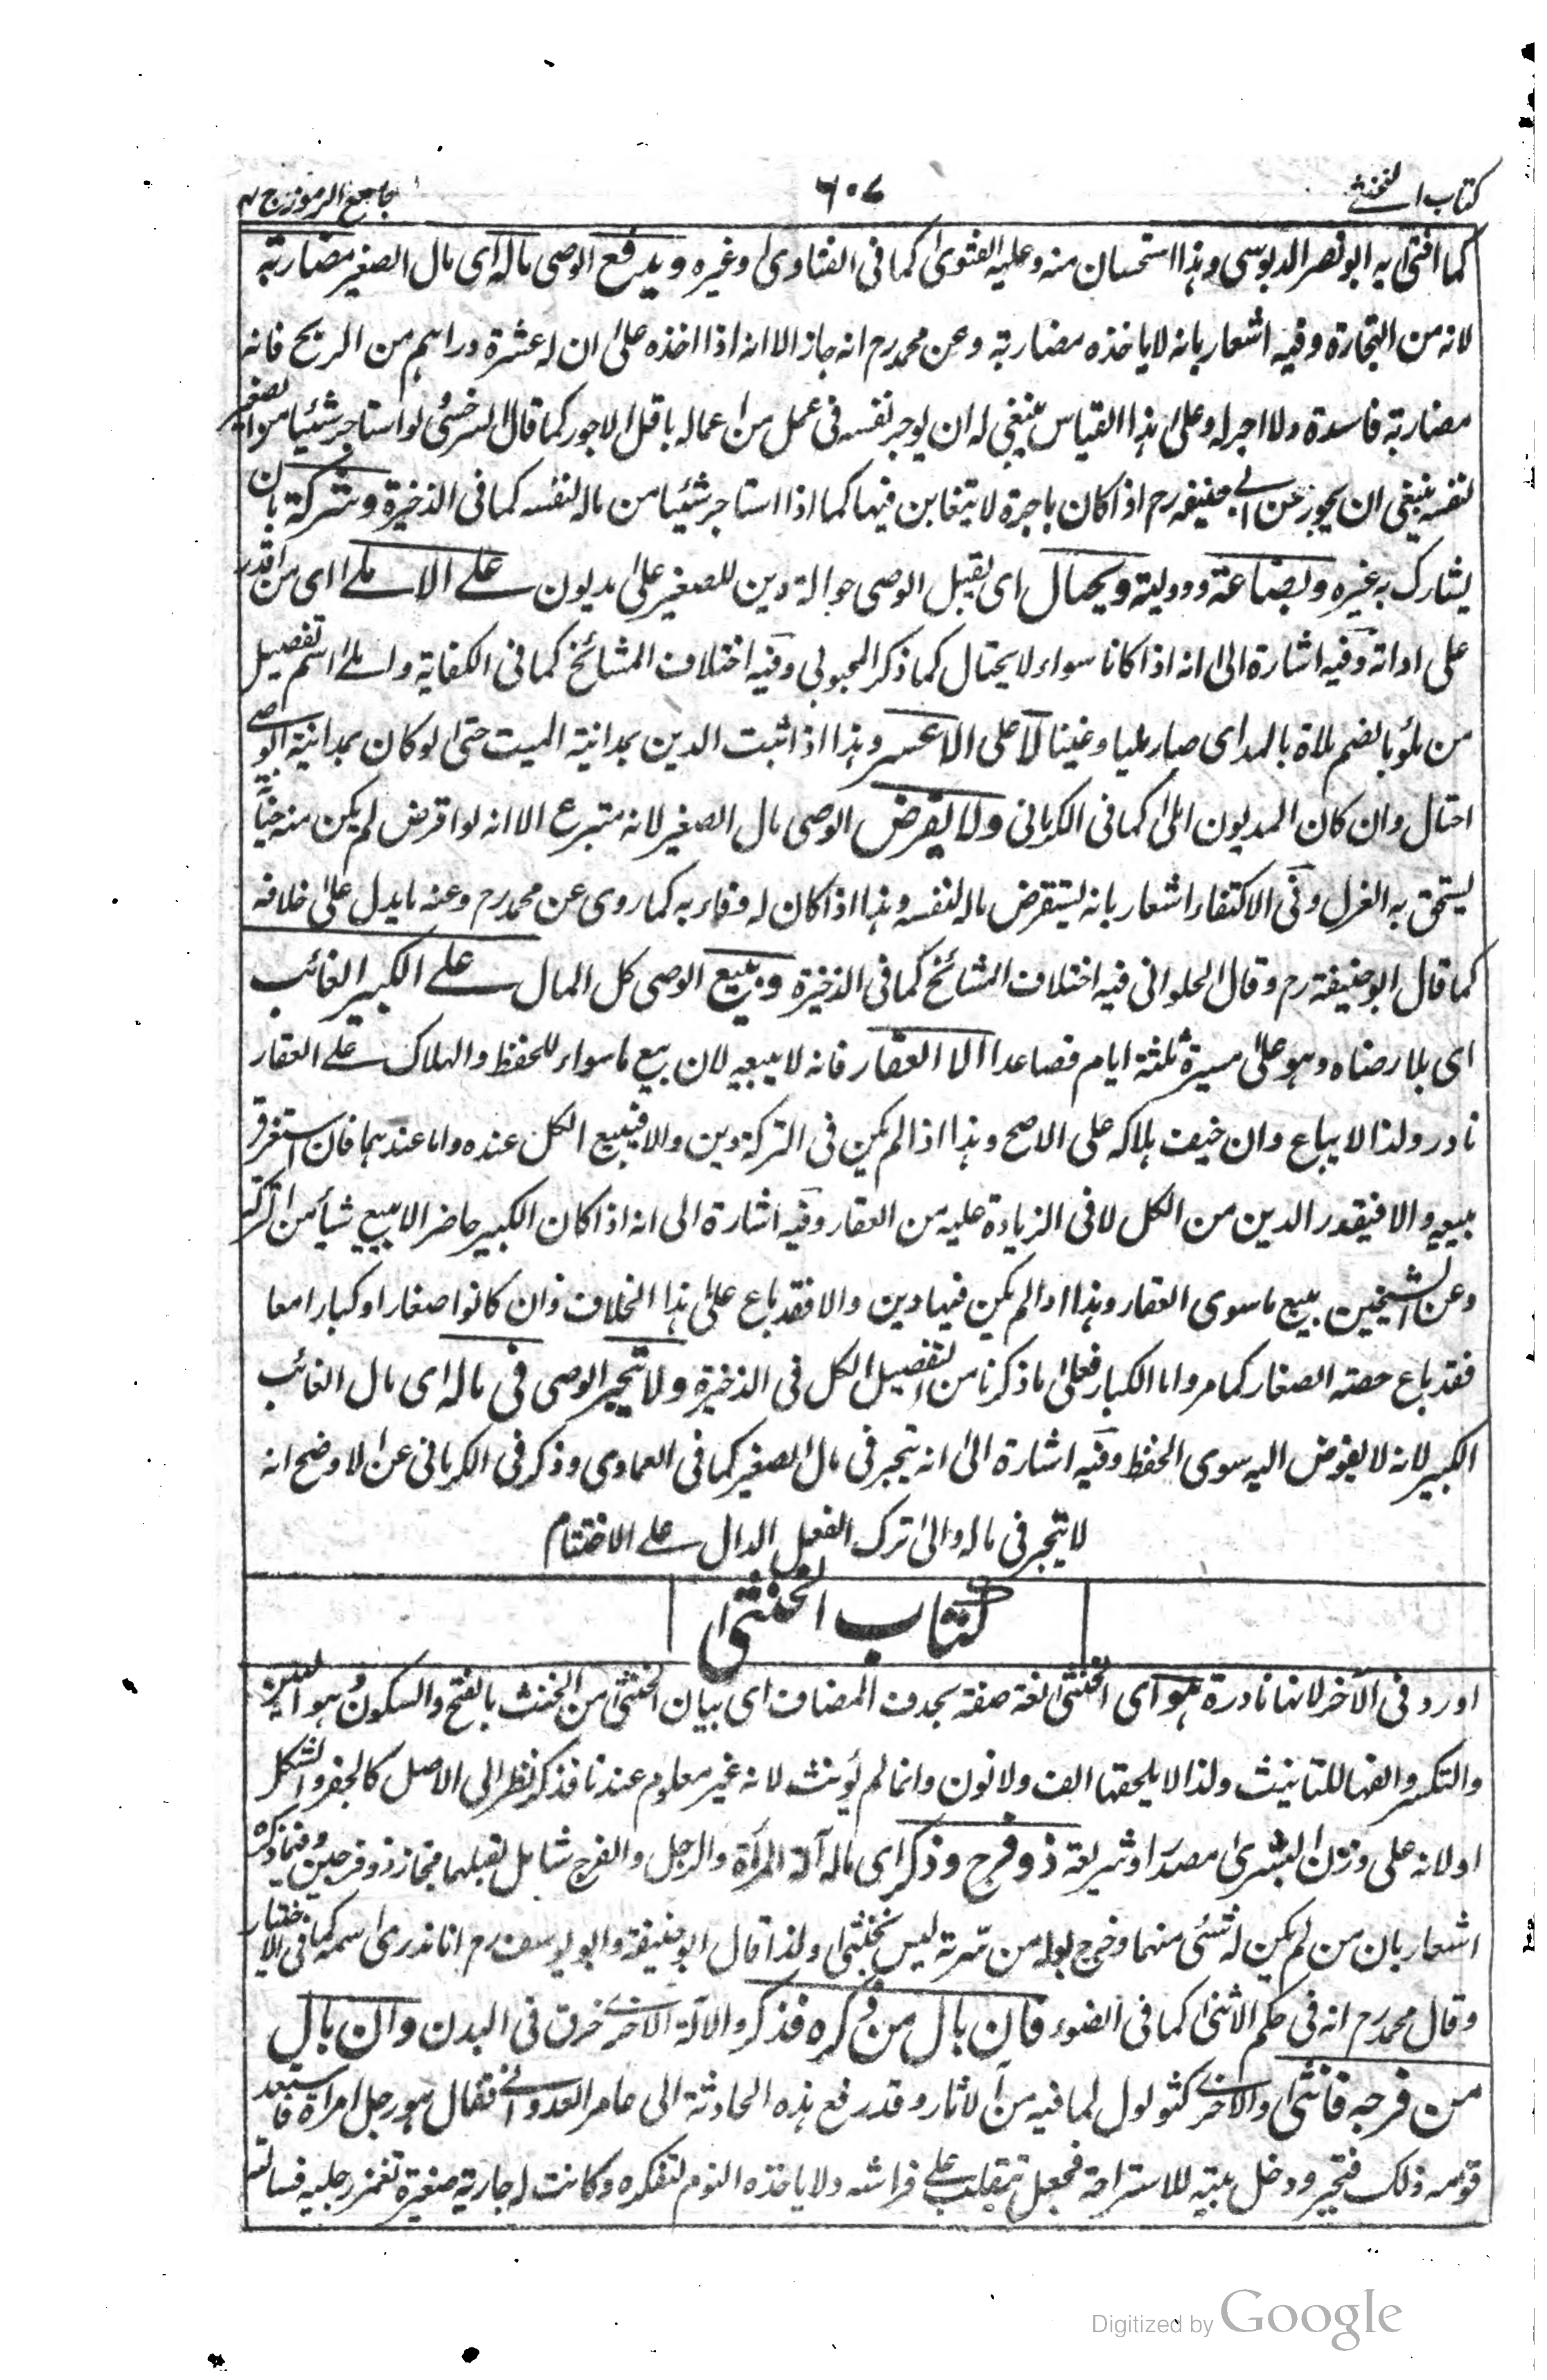 كتاب الخنثى
٦٠٧
جامع الرموز ج ٢
كما افتى به ابو نصر الدبوسى وهذا استحسان منه وعليه الفتوى كما فى الفتاوى وغيره ويدفع الوصى ماله اى مال الصغير مضاربة
لانه من التجارة وفيه اشعار بانه لا ياخذه مضاربة وعن محمد رح انه جاز الا انه اذا اخذه على ان له عشرة دراهم من الربح فانه
مضاربة فاسدة ولا اجر له وعلى هذا القياس ينبغى له ان يوجر نفسه فى عمل من اعماله باقل الاجور كما قال السرخسى لو استاجر شيئا من الصغير
لنفسه ينبغى ان يجوز عن ابى حنيفة رح اذا كان باجرة لا يتغابن فيها كما اذا استاجر شيئا من ماله لنفسه كما فى الذخيرة وشركة بان
يشارك به غيره وبضاعة ووديعة ويحتال اى يقبل الوصى حوالة دين للصغير على مديون على الاملى اى من اقدر
على اداته وفيه اشارة الى انه اذا كانا سواء لا يحتال كما ذكر المحبوبى وفيه اختلاف المشائخ كما فى الكفاية واملى اسم تفضيل
من ملؤ بالضم ملاة بالمد اى صار مليا وغنيا لا على الاعسر وهذا اذا ثبت الدين بمداينة الميت حتى لو كان بمداينة الوصى
احتال وان كان المديون املى كما فى الكرمانى ولا يقرض الوصى مال الصغير لانه متبرع الا انه لو اقرض لم يكن منه خيانة
يستحق به العزل وفى الاكتفاء اشعار بانه يستقرض ماله لنفسه وهذا اذا كان له وفاء به كما روى عن محمد رح وعنه ما يدل على خلافه
كما قال ابو حنيفة رح وقال الحلوانى فيه اختلاف المشائخ كما فى الذخيرة ويبيع الوصى كل المال على الكبير الغائب
اى بلا رضاه وهو على مسيرة ثلثة ايام فصاعدا الا العقار فانه لا يبيعه لان بيع ما سواه للحفظ والهلاك على العقار
نادر ولذا لا يباع وان خيف هلاكه على الاصح وهذا اذا لم يكن فى التركة دين والا فيبيع الكل عنده واما عندهما فان استغرق
يبيعه والا فبقدر الدين من الكل لا فى الزيادة عليه من العقار وفيه اشارة الى انه اذا كان الكبير حاضرا لا يبيع شيأ من التركة
وعن الشيخين يبيع ما سوى العقار وهذا اذا لم يكن فيها دين والا فقد باع على هذا الخلاف وان كانوا صغارا وكبارا معا
فقد باع حصة الصغار كما مر واما الكبار فعلى ما ذكرنا من التفصيل الكل فى الذخيرة ولا يتجر الوصى فى ماله اى مال الغائب
الكبير لانه لا يفوض اليه سوى الحفظ وفيه اشارة الى انه يتجر فى مال الصغير كما فى العمادى وذكر فى الكرمانى عن الاوضح انه
لا يتجر فى ماله والى ترك الفعل الدال على الاختتام
كتاب الخنثى
اورد فى الآخر لانها نادرة هو اى الخنثى لغة صفة بحذف المضاف اى بيان الخنثى من الخنث بالفتح والسكون وهو اللين
والتكسر والفها للتانيث ولذا لا يلحقها الف ولا نون وانما لم يؤنث لانه غير معلوم عندنا فذكر نظرا الى الاصل كالجفر والشكل
او لانه على وزن البشرى مصدرا وشريعة ذو فرج وذكر اى ماله آلة المرأة والرجل والفرج شامل لقبلهما فجاز ذو فرجين وفيما ذكره
اشعار بان من لم يكن له شئ منهما وخرج بوله من سرته ليس بخنثى ولذا قال ابو حنيفة وابو يوسف رح انا لا ندرى اسمه كما فى الاختيار
وقال محمد رح انه فى حكم الانثى كما فى الضوء فان بال من ذكره فذكر والالة الاخرى خرق فى البدن وان بال
من فرجه فانثى والاخرى كثولول لما فيه من الاثار وقد رفع هذه الحادثة الى عامر العدوانى فقال هو رجل امرأة فاستبعد
قومه ذلك فتحير ودخل بيته للاستراحة فجعل يتقلب على فراشه ولا ياخذه النوم لتفكره وكانت له جارية صغيرة تغمز رجليه فسالته
Digitized by Google